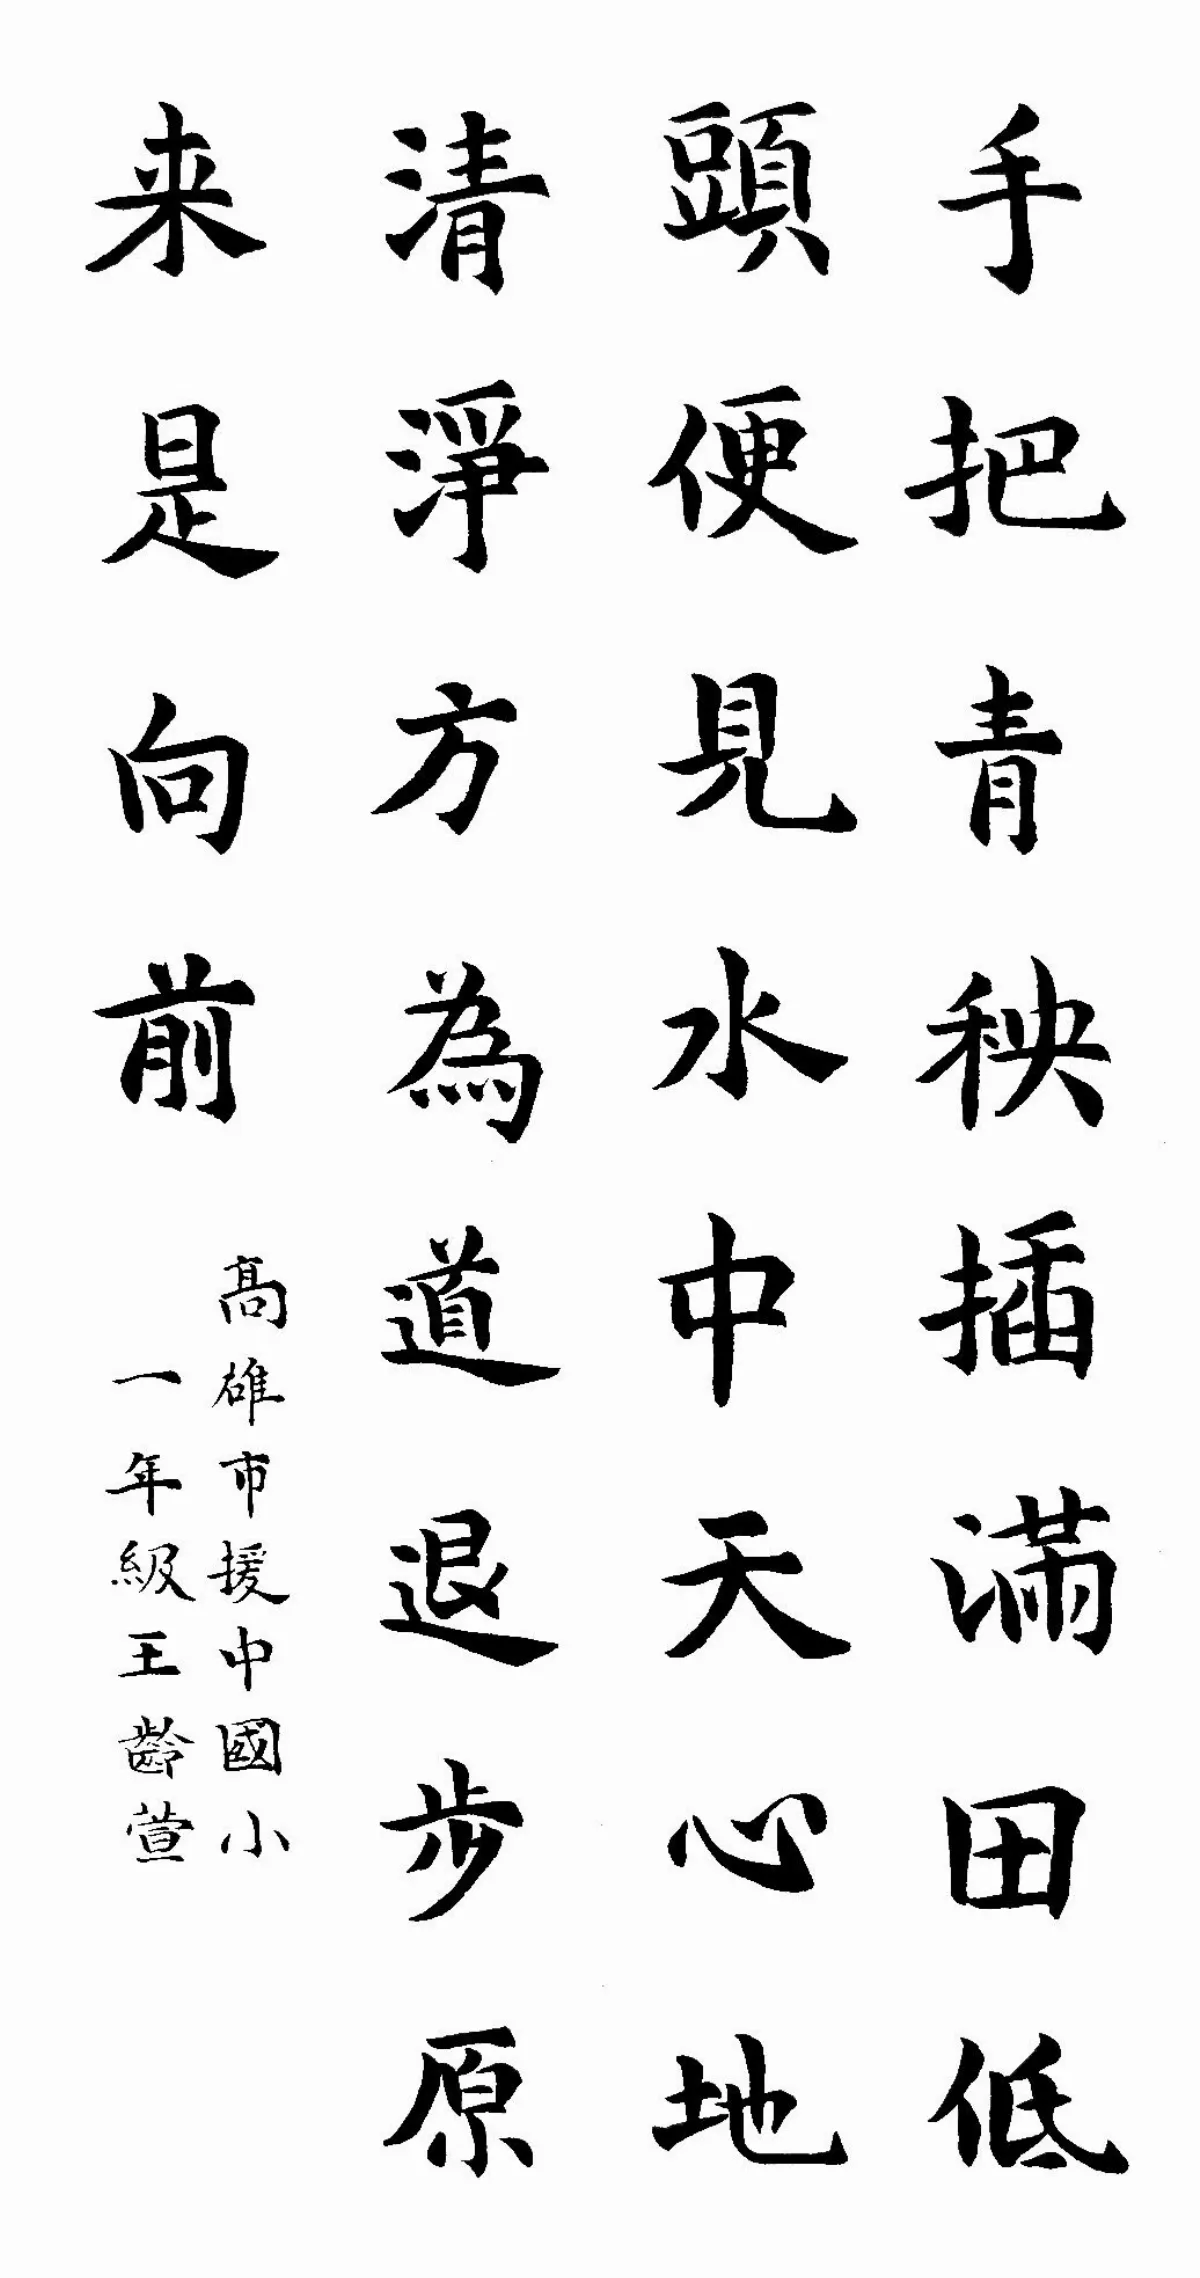 手把青秧插滿田低
頭便見水中天心地
清淨方為道退步原
来是向前
高雄市援中國小
一年級王齡萱